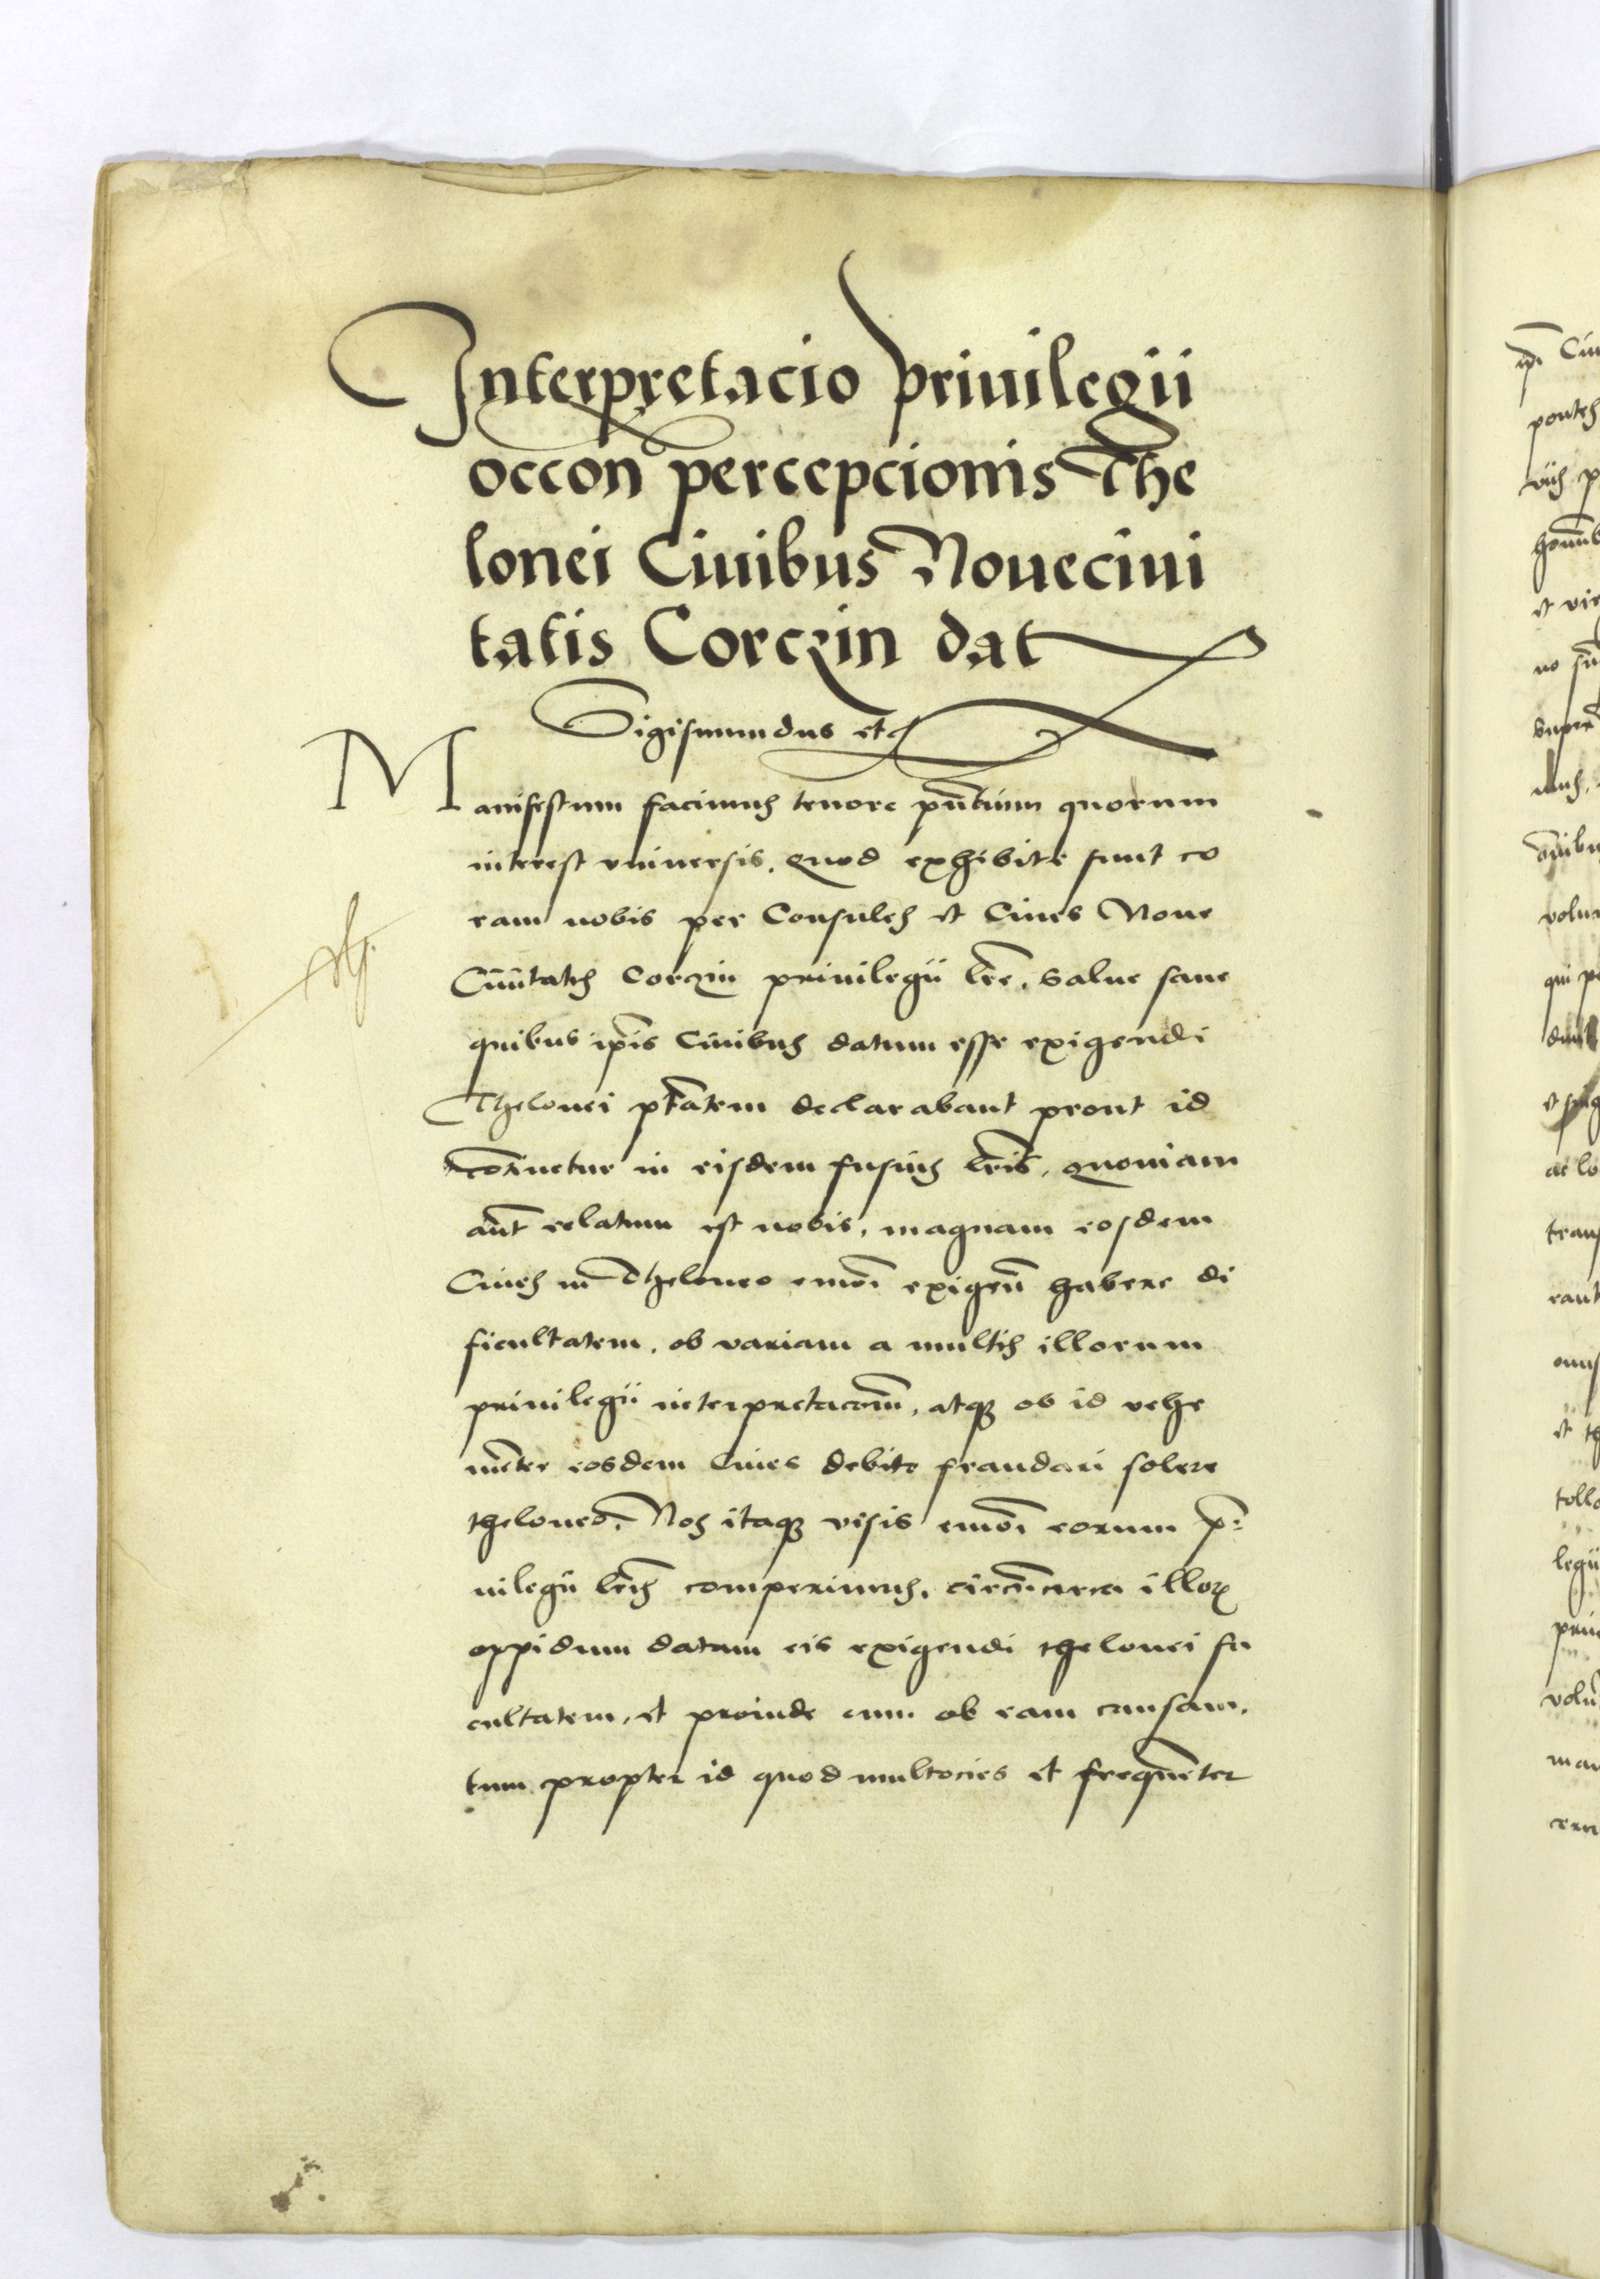 Interpretacio privilegii
occon percepcionis The
lonei Civibus Novecivi
tatis Corczin dat
Sigismundus etc
Manifestum facimus tenore pñtium quorum
interest vniuersis. Quod exhibite sunt co
ram nobis per Consules et Ciues Noue
Ciuitatis Corczin priuilegii lrẽ. salue sane
quibus ip̃is Ciuibus datum esse exigendi
Thelonei ptãtem declarabant prout id
continetur in eisdem fusius lrĩs. Quoniam
aut̃ relatum est nobis, magnam eosdem
Ciues in Theloneo em̃oi exigeñ habere di
ficultatem, ob variam a multis illorum
priuilegii interpretacom̃, atq3 ob id vehe
mẽter eosdem Ciues debito fraudari solere
theloneo. Nos itaq3 visis em̃oi eorum p̃ri
uilegii lrĩs comperimus, circũcirca illoꝝ
oppidum datam eis exigendi thelonei fa
cultatem, et proinde cum ob eam causam,
tum propter id quod multocies et freqũeter
ip̃i Ciu